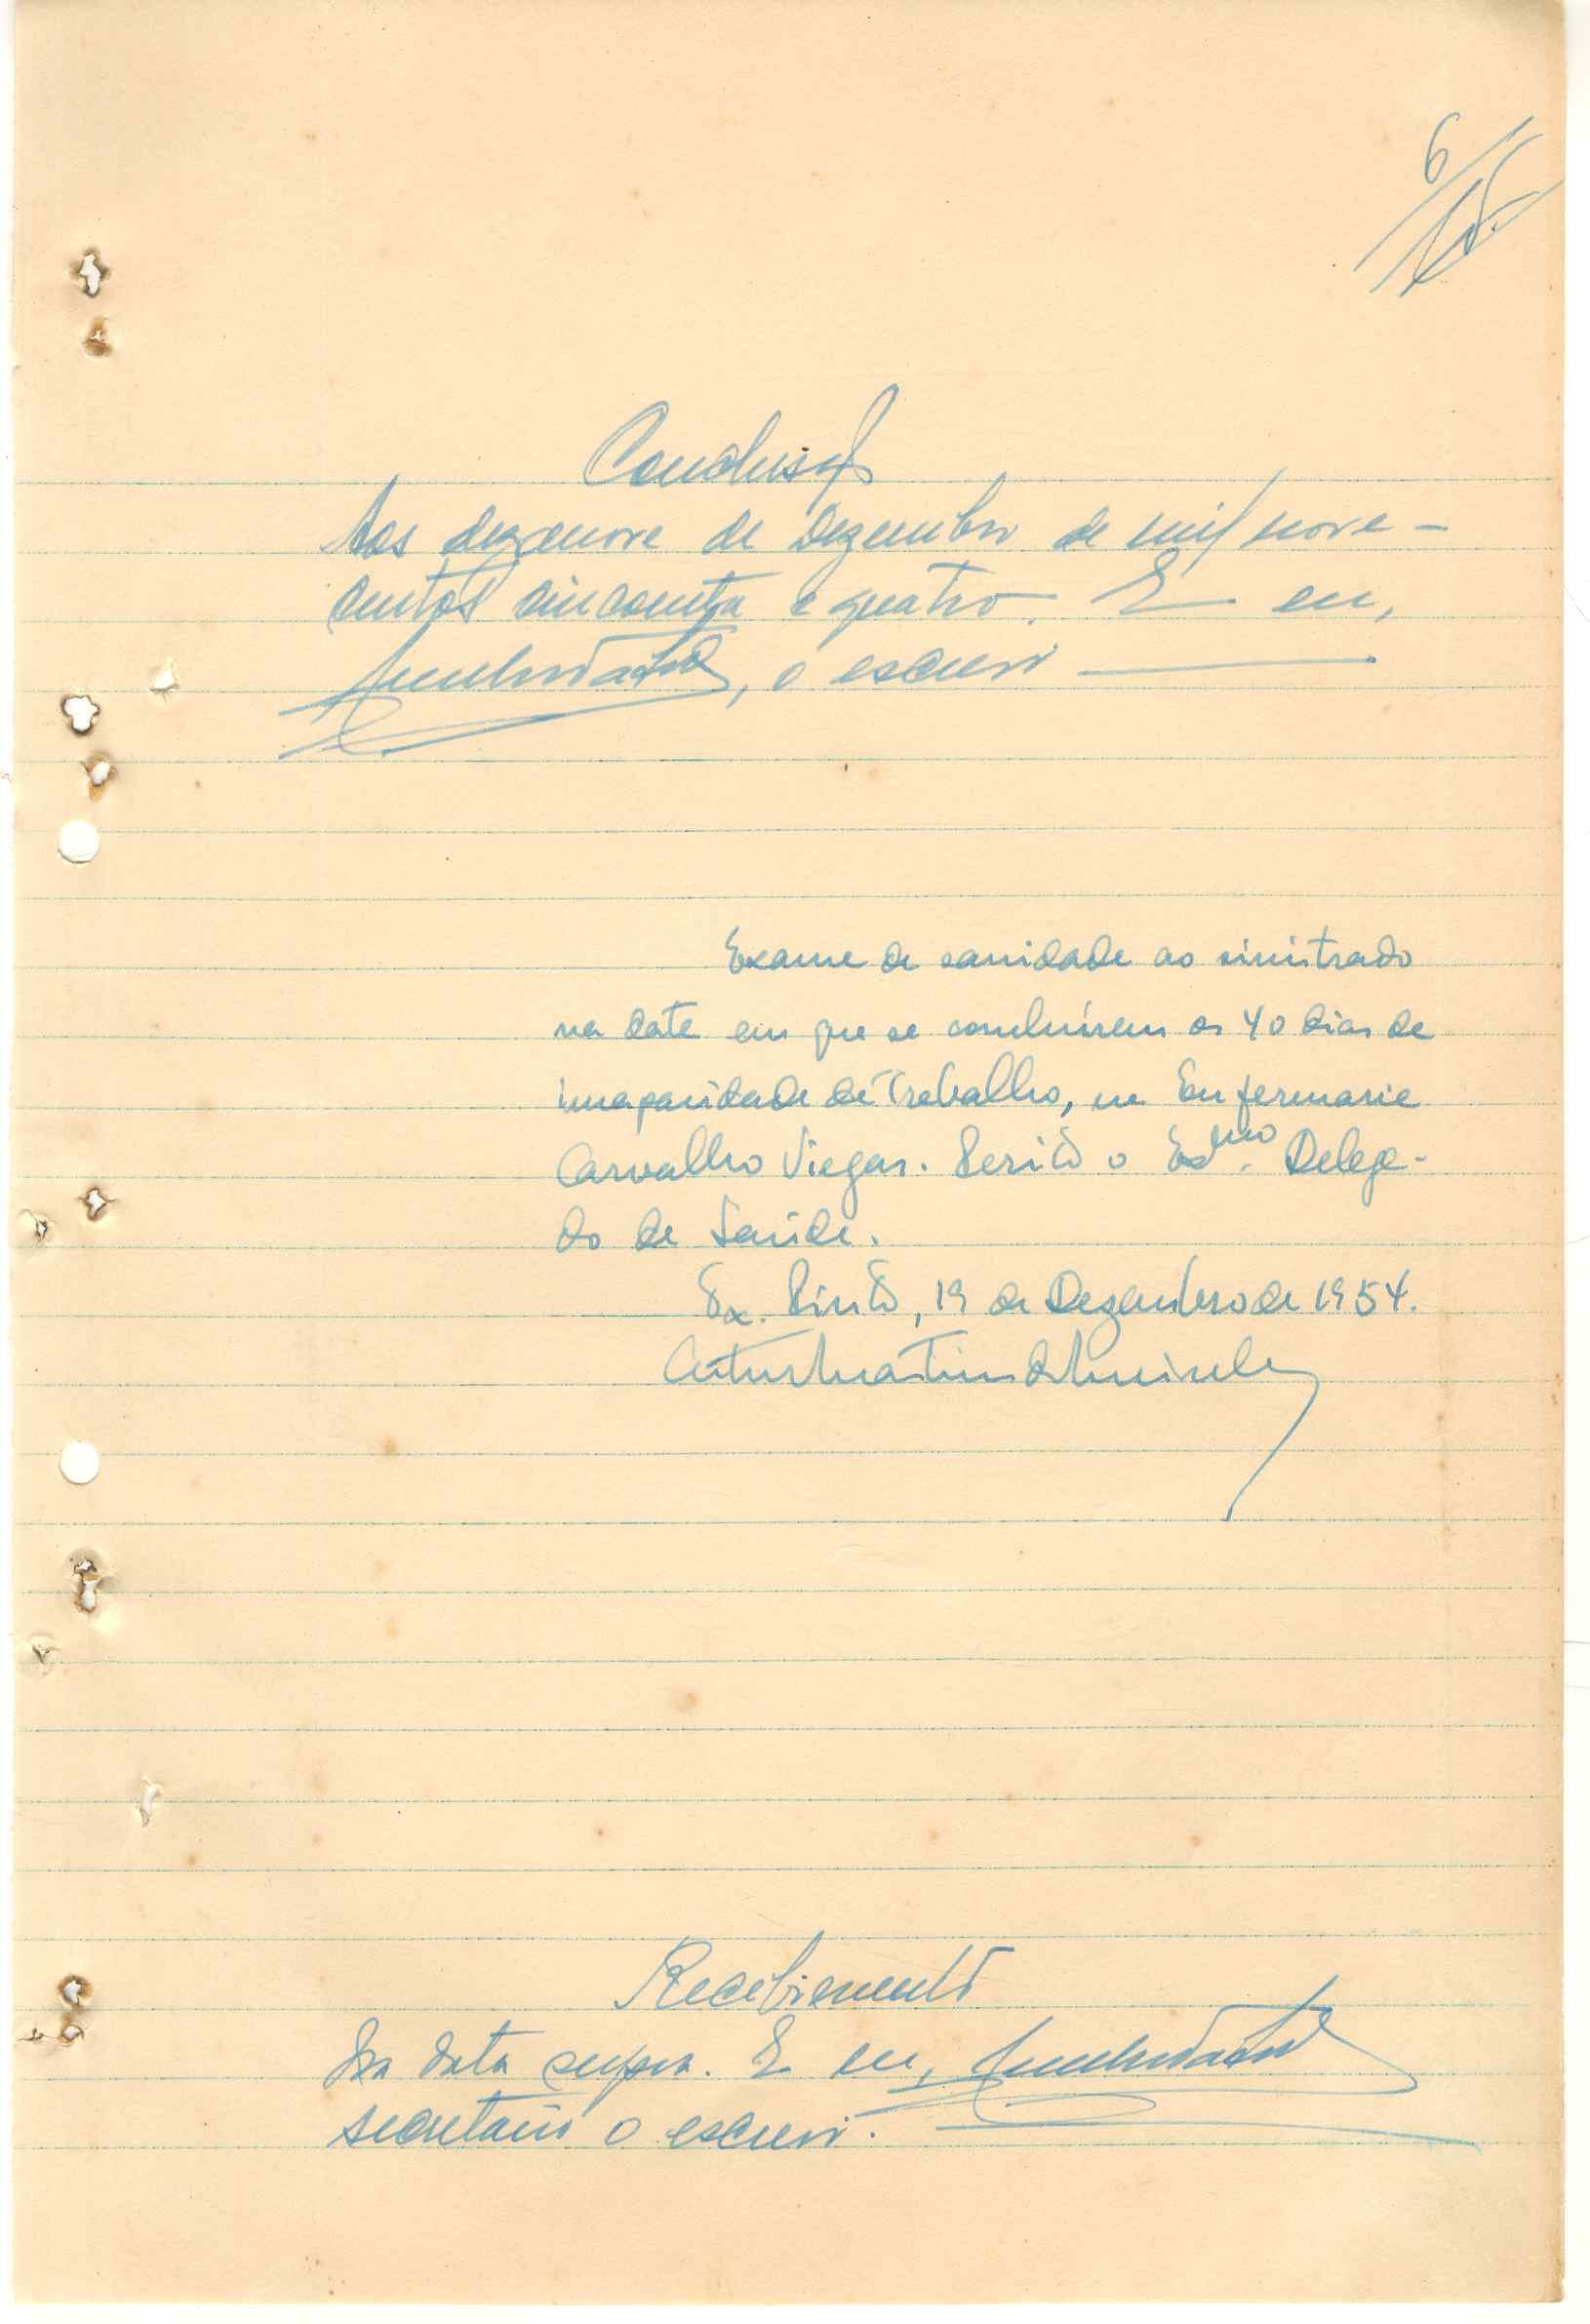 6
Conclusão
Aos dezanove de Dezembro de mil nove-
centos cincoenta e quatro. E eu,
, o escrevi
Exame de sanidade ao sinistrado
na data em que se concluirem os 40 dias de
incapacidade de trabalho, na Enfermaria
Carvalho Viegas. Perito o Exmo. Delega-
do de Saúde.
Sx. Pinto, 19 de Dezembro de 1954.
Artur Martins de Meireles
Recebimento
Na data supra. E eu,
secretário o escrevi.